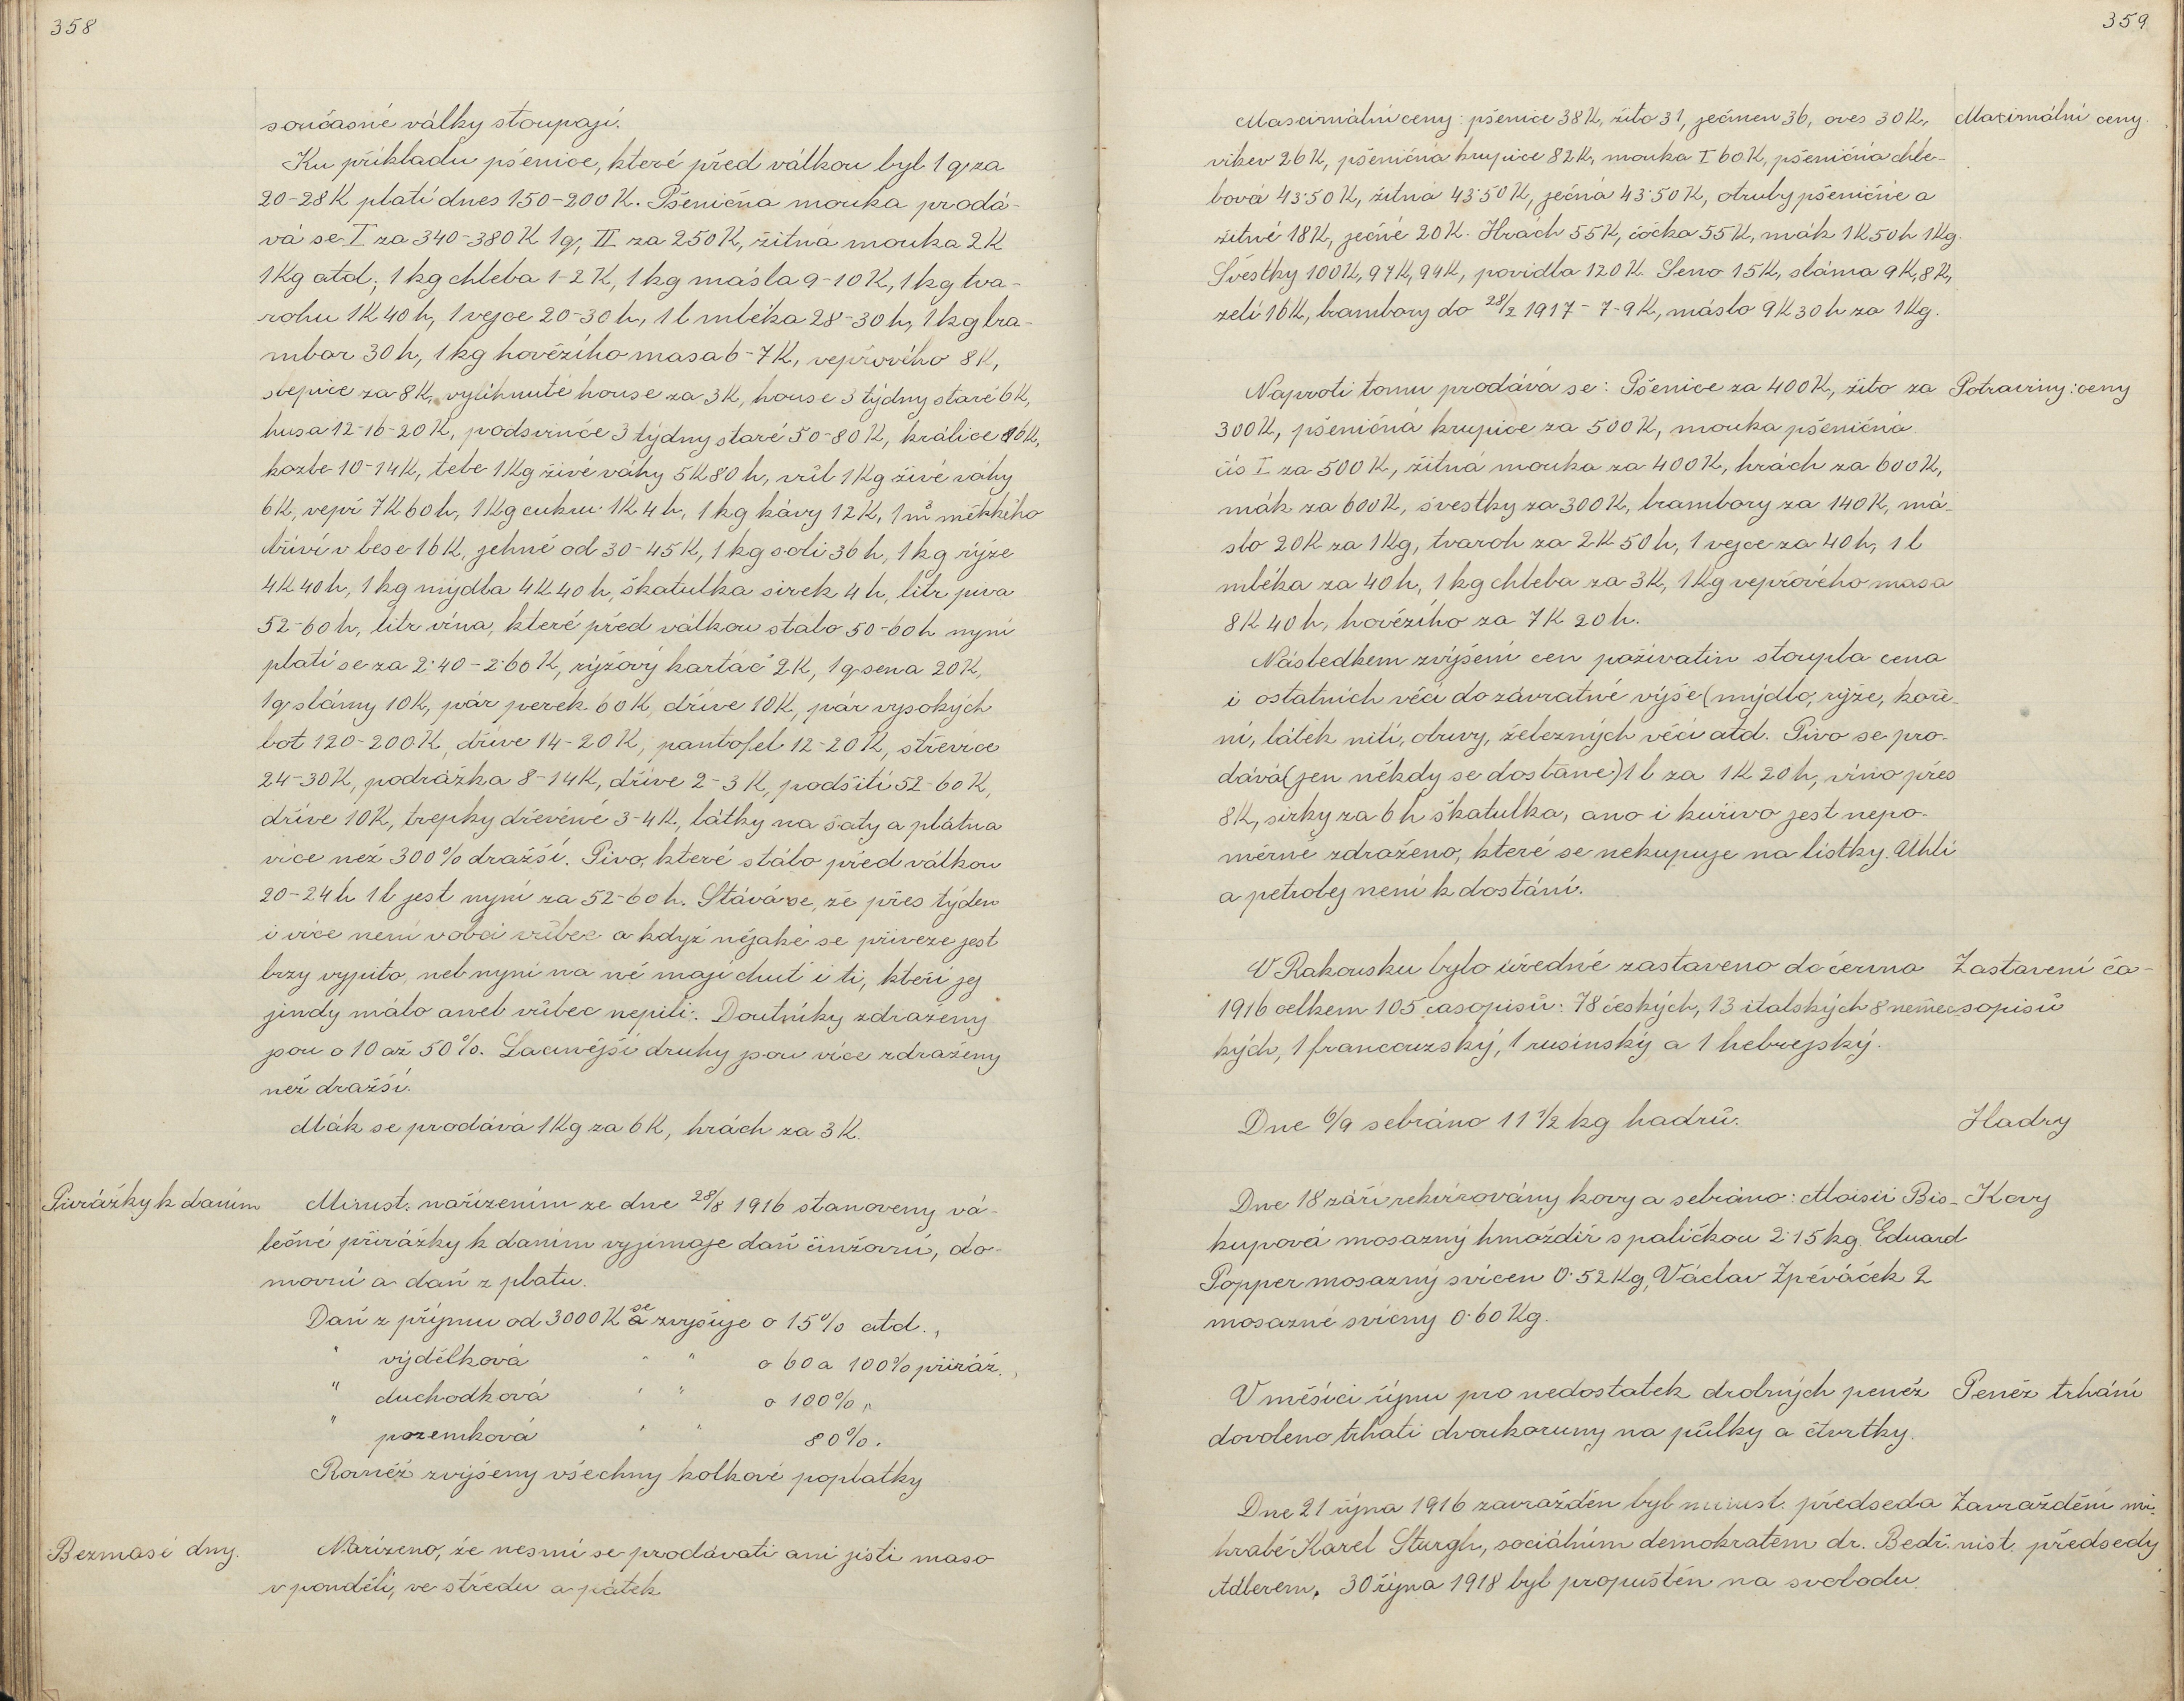 358
současné války stoupají.
Ku příkladu pšenice, které před válkou byl 1 q za
20-28 K platí dnes 150-200 K. Pšeničná mouka prodá-
vá se I za 340-380 K 1 q, II za 250 K, žitná mouka 2 K
1 Kg atd., 1 kg chleba 1-2 K, 1 kg másla 9-10 K, 1 kg tva-
rohu 1 K 40 h, 1 vejce 20-30 h, 1 l mléka 28-30 h, 1 kg bra-
mbor 30 h, 1 kg hovězího masa 6-7 K, vepřového 8 K,
slepice za 8 K, vylíhnuté house za 3 K, house 3 týdny staré 6 K,
husa 12-16-20 K, podsvinče 3 týdny staré 50-80 K, králice 16 K,
kozle 10-14 K, tele 1 Kg živé váhy 5 K 80 h, vůl 1 Kg živé váhy
6 K, vepř 7 K 60 h, 1 Kg cukru 1 K 4 h, 1 kg kávy 12 K, 1 m³ měkkého
dříví v lese 16 K, jehně od 30-45 K, 1 kg soli 36 h, 1 kg rýže
4 K 40 h, 1 kg mýdla 4 K 40 h, škatulka sirek 4 h, litr piva
52-60 h, litr vína, které před válkou stálo 50-60 h nyní
platí se za 2·40-2·60 K, rýžový kartáč 2 K, 1 q sena 20 K,
1 q slámy 10 K, pár perek 60 K, dříve 10 K, pár vysokých
bot 120-200 K, dříve 14-20 K, pantofel 12-20 K, střevíce
24-30 K, podrážka 8-14 K, dříve 2-3 K, podšití 52-60 K,
dříve 10 K, trepky dřevěné 3-4 K, látky na šaty a plátna
více než 300% dražší. Pivo, které stálo před válkou
20-24 h 1 l jest nyní za 52-60 h. Stává se, že přes týden
i více není v obci vůbec a když nějaké se přiveze jest
brzy vypito, neb nyní na ně mají chuť i ti, kteří jej
jindy málo aneb vůbec nepili. Doutníky zdraženy
jsou o 10 až 50%. Lacinější druhy jsou více zdraženy
než dražší.
Mák se prodává 1 Kg za 6 K, hrách za 3 K.
Přirážky k daním
Minist. nařízením ze dne 28/8 1916 stanoveny vá-
lečné přirážky k daním vyjímaje daň činžovní, do-
movní a daň z platu.
Daň z příjmu od 3000 K se zvyšuje o 15% atd.,
" výdělková " " o 60 a 100% přiráž.,
" duchodková " " o 100% "
" pozemková " " 80%.
Rovněž zvýšeny všechny kolkové poplatky
Bezmasé dny.
Nařízeno, že nesmí se prodávati ani jísti maso
v pondělí, ve středu a pátek
359
Maximální ceny: pšenice 38 K, žito 31, ječmen 36, oves 30 K,
Maximální ceny.
vikev 26 K, pšeničná krupice 82 K, mouka I 60 K, pšeničná chle-
bová 43·50 K, žitná 43·50 K, ječná 43·50 K, otruby pšeničné a
žitné 18 K, ječné 20 K. Hrách 55 K, čočka 55 K, mák 1 K 50 h 1 Kg.
Švestky 100 K, 97 K, 94 K, povidla 120 K. Seno 15 K, sláma 9 K, 8 K,
zelí 16 K, brambory do 28/2 1917 - 7-9 K, máslo 9 K 30 h za 1 Kg.
Naproti tomu prodává se: Pšenice za 400 K, žito za
Potraviny: ceny
300 K, pšeničná krupice za 500 K, mouka pšeničná
čís I za 500 K, žitná mouka za 400 K, hrách za 600 K,
mák za 600 K, švestky za 300 K, brambory za 140 K, má-
slo 20 K za 1 Kg, tvaroh za 2 K 50 h, 1 vejce za 40 h, 1 l
mléka za 40 h, 1 kg chleba za 3 K, 1 Kg vepřového masa
8 K 40 h, hovězího za 7 K 20 h.
Následkem zvýšení cen poživatin stoupla cena
i ostatních věcí do závratné výše (mýdlo, rýže, koře-
ní, látek nití, obuvy, železných věcí atd. Pivo se pro-
dává (jen někdy se dostane) 1 l za 1 K 20 h, víno přes
8 K, sirky za 6 h škatulka, ano i kuřivo jest nepo-
měrně zdraženo, které se nekupuje na lístky. Uhlí
a petrolej není k dostání.
V Rakousku bylo úředně zastaveno do června
Zastavení ča-
1916 celkem 105 časopisů: 78 českých, 13 italských 8 němec
sopisů
kých, 1 francouzský, 1 rusínský a 1 hebrejský.
Dne 6/9 sebráno 11 1/2 kg hadrů.
Hadry
Dne 18 září rekvírovány kovy a sebráno: Moisii Bis-
Kovy
kupová mosazný hmoždíř s paličkou 2·15 kg. Eduard
Popper mosazný svícen 0·52 Kg, Václav Zpěváček 2
mosazné svícny 0·60 Kg.
V měsíci říjnu pro nedostatek drobných peněz
Peněz trhání
dovoleno trhati dvoukoruny na půlky a čtvrtky.
Dne 21 října 1916 zavražděn byl minist. předseda
Zavraždění mi-
hrabě Karel Sturgh, sociálním demokratem dr. Bedř.
nist. předsedy
Adlerem. 30 října 1918 byl propuštěn na svobodu